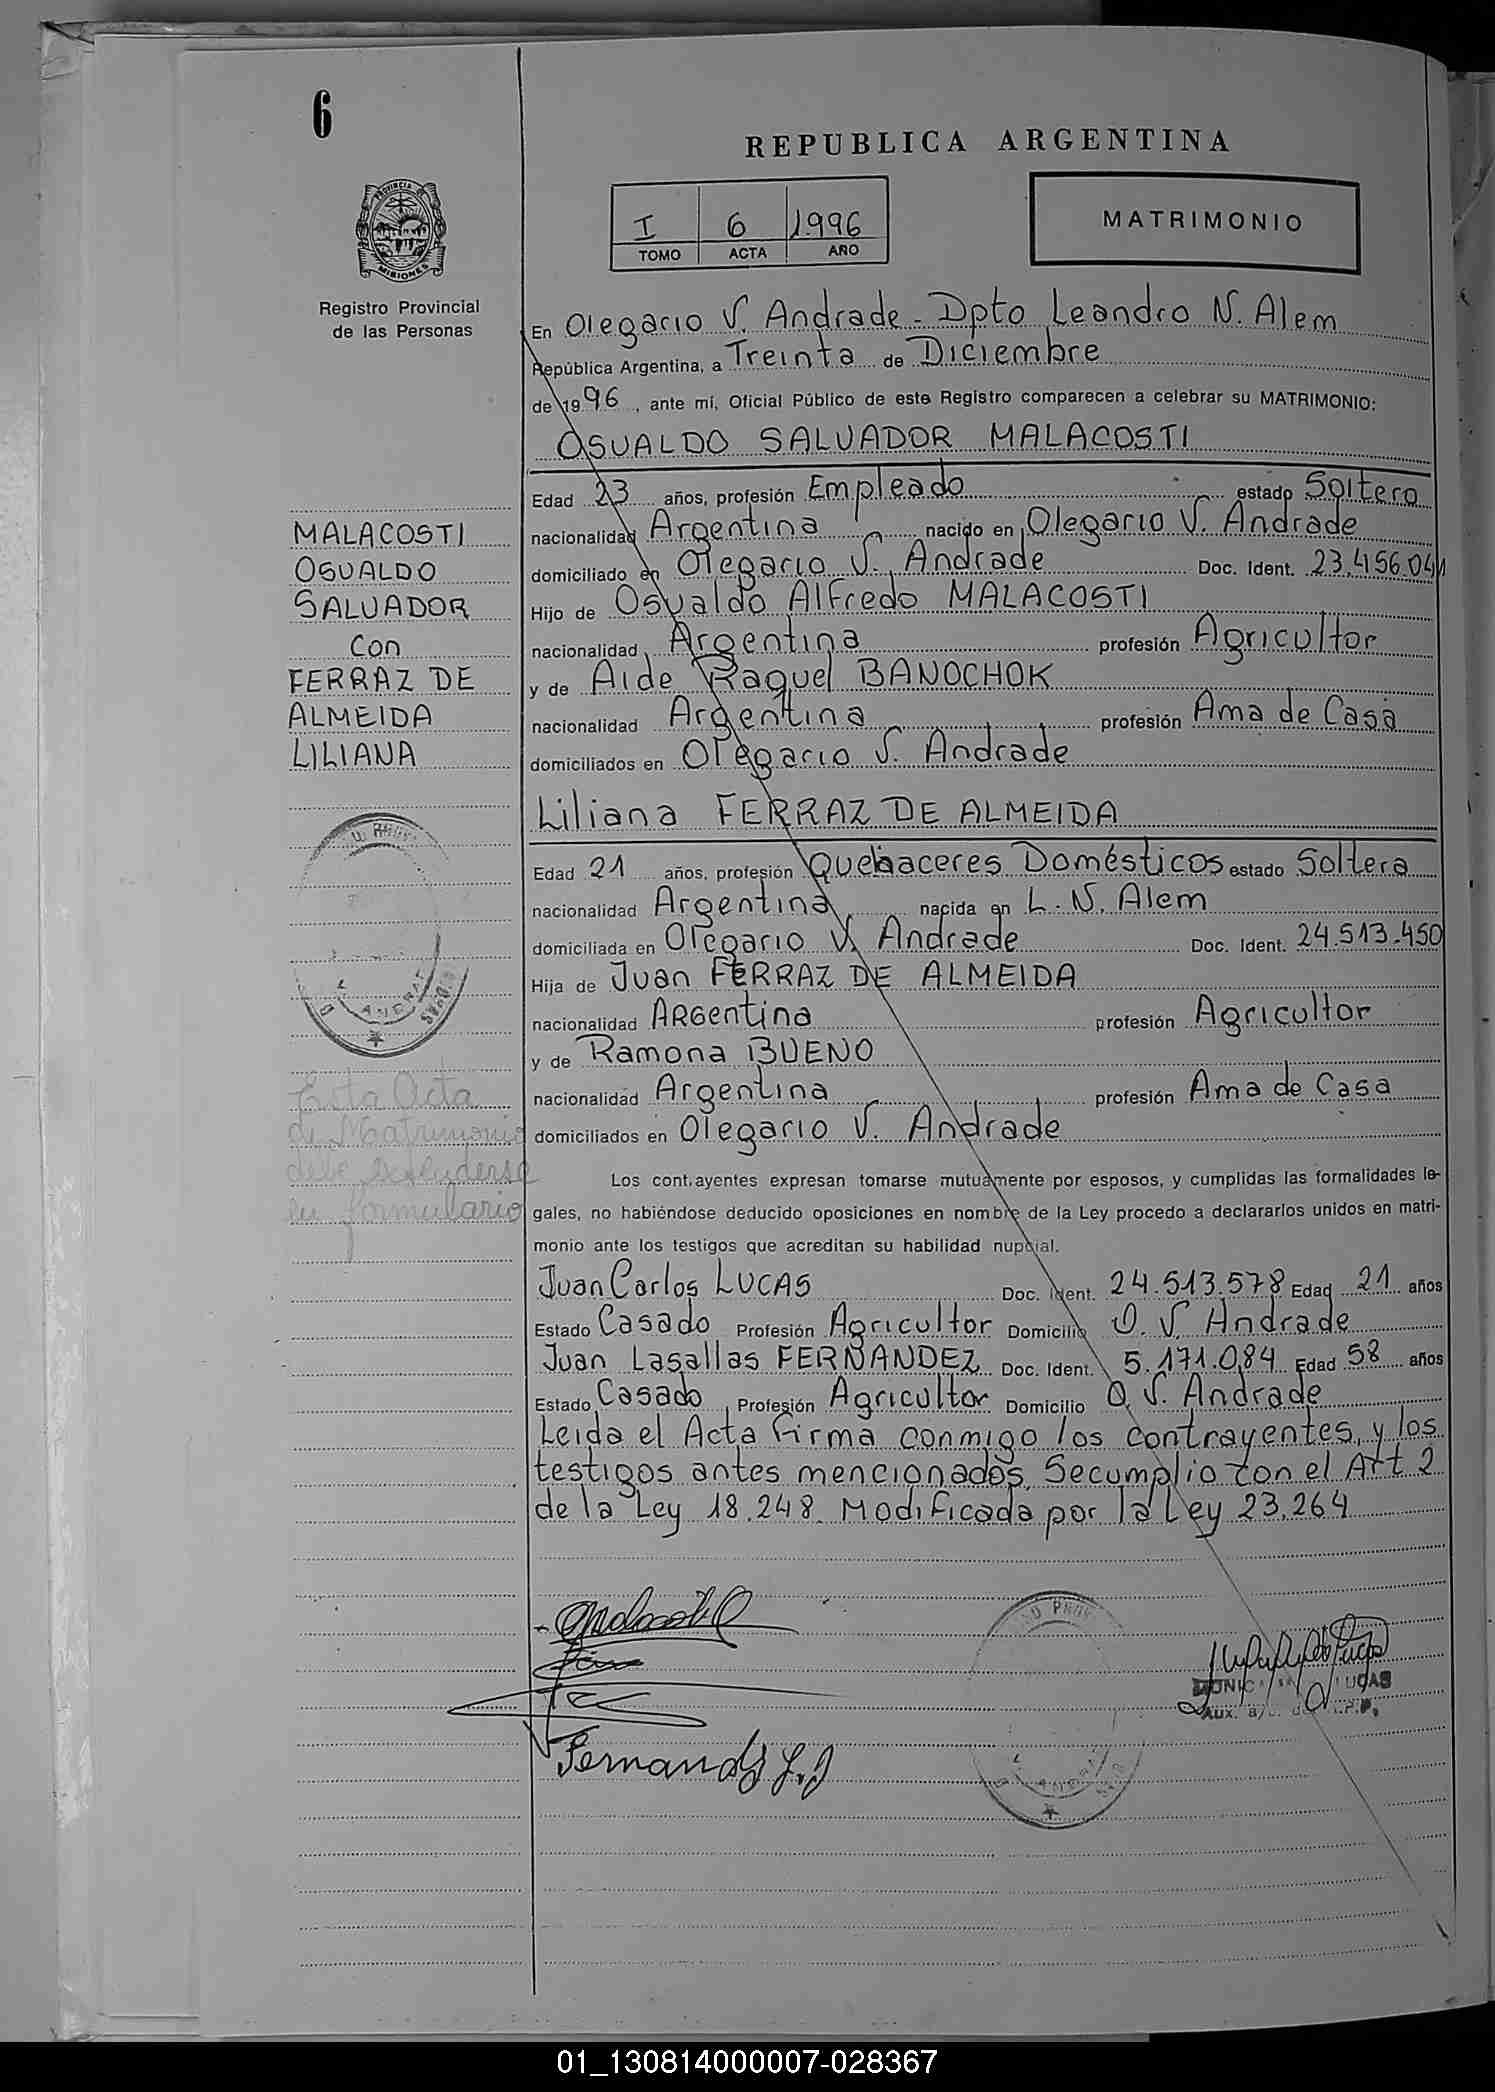 6
REPUBLICA ARGENTINA
PROVINCIA DE
MISIONES
Registro Provincial
de las Personas
I 6 1996
TOMO ACTA AÑO
MATRIMONIO
En Olegario V. Andrade - Dpto Leandro N. Alem
República Argentina, a Treinta de Diciembre
de 1996, ante mí, Oficial Público de este Registro comparecen a celebrar su MATRIMONIO:
OSVALDO SALVADOR MALACOSTI
Edad 23 años, profesión Empleado estado Soltero
nacionalidad Argentina nacido en Olegario V. Andrade
domiciliado en Olegario V. Andrade Doc. Ident. 23.456.041
Hijo de Osvaldo Alfredo MALACOSTI
nacionalidad Argentina profesión Agricultor
y de Aide Raquel BANOCHOK
nacionalidad Argentina profesión Ama de Casa
domiciliados en Olegario V. Andrade
MALACOSTI
OSVALDO
SALVADOR
Con
FERRAZ DE
ALMEIDA
LILIANA
Liliana FERRAZ DE ALMEIDA
Edad 21 años, profesión Quehaceres Domésticos estado Soltera
nacionalidad Argentina nacida en L. N. Alem
domiciliada en Olegario V. Andrade Doc. Ident. 24.513.450
Hija de Juan FERRAZ DE ALMEIDA
nacionalidad ARGentina profesión Agricultor
y de Ramona BUENO
nacionalidad Argentina profesión Ama de Casa
domiciliados en Olegario V. Andrade
Esta Acta
de Matrimonio
debe
en formulario
Los cont.ayentes expresan tomarse mutuamente por esposos, y cumplidas las formalidades le-
gales, no habiéndose deducido oposiciones en nombre de la Ley procedo a declararlos unidos en matri-
monio ante los testigos que acreditan su habilidad nupcial.
Juan Carlos LUCAS Doc. Ident. 24.513.578 Edad 21 años
Estado Casado Profesión Agricultor Domicilio O. V. Andrade
Juan Lasallas FERNANDEZ Doc. Ident. 5.171.084 Edad 58 años
Estado Casado Profesión Agricultor Domicilio O. V. Andrade
Leida el Acta firma conmigo los contrayentes, y los
testigos antes mencionados. Secumplio con el Art 2
de la Ley 18.248. Modificada por la Ley 23.264
01_130814000007-028367